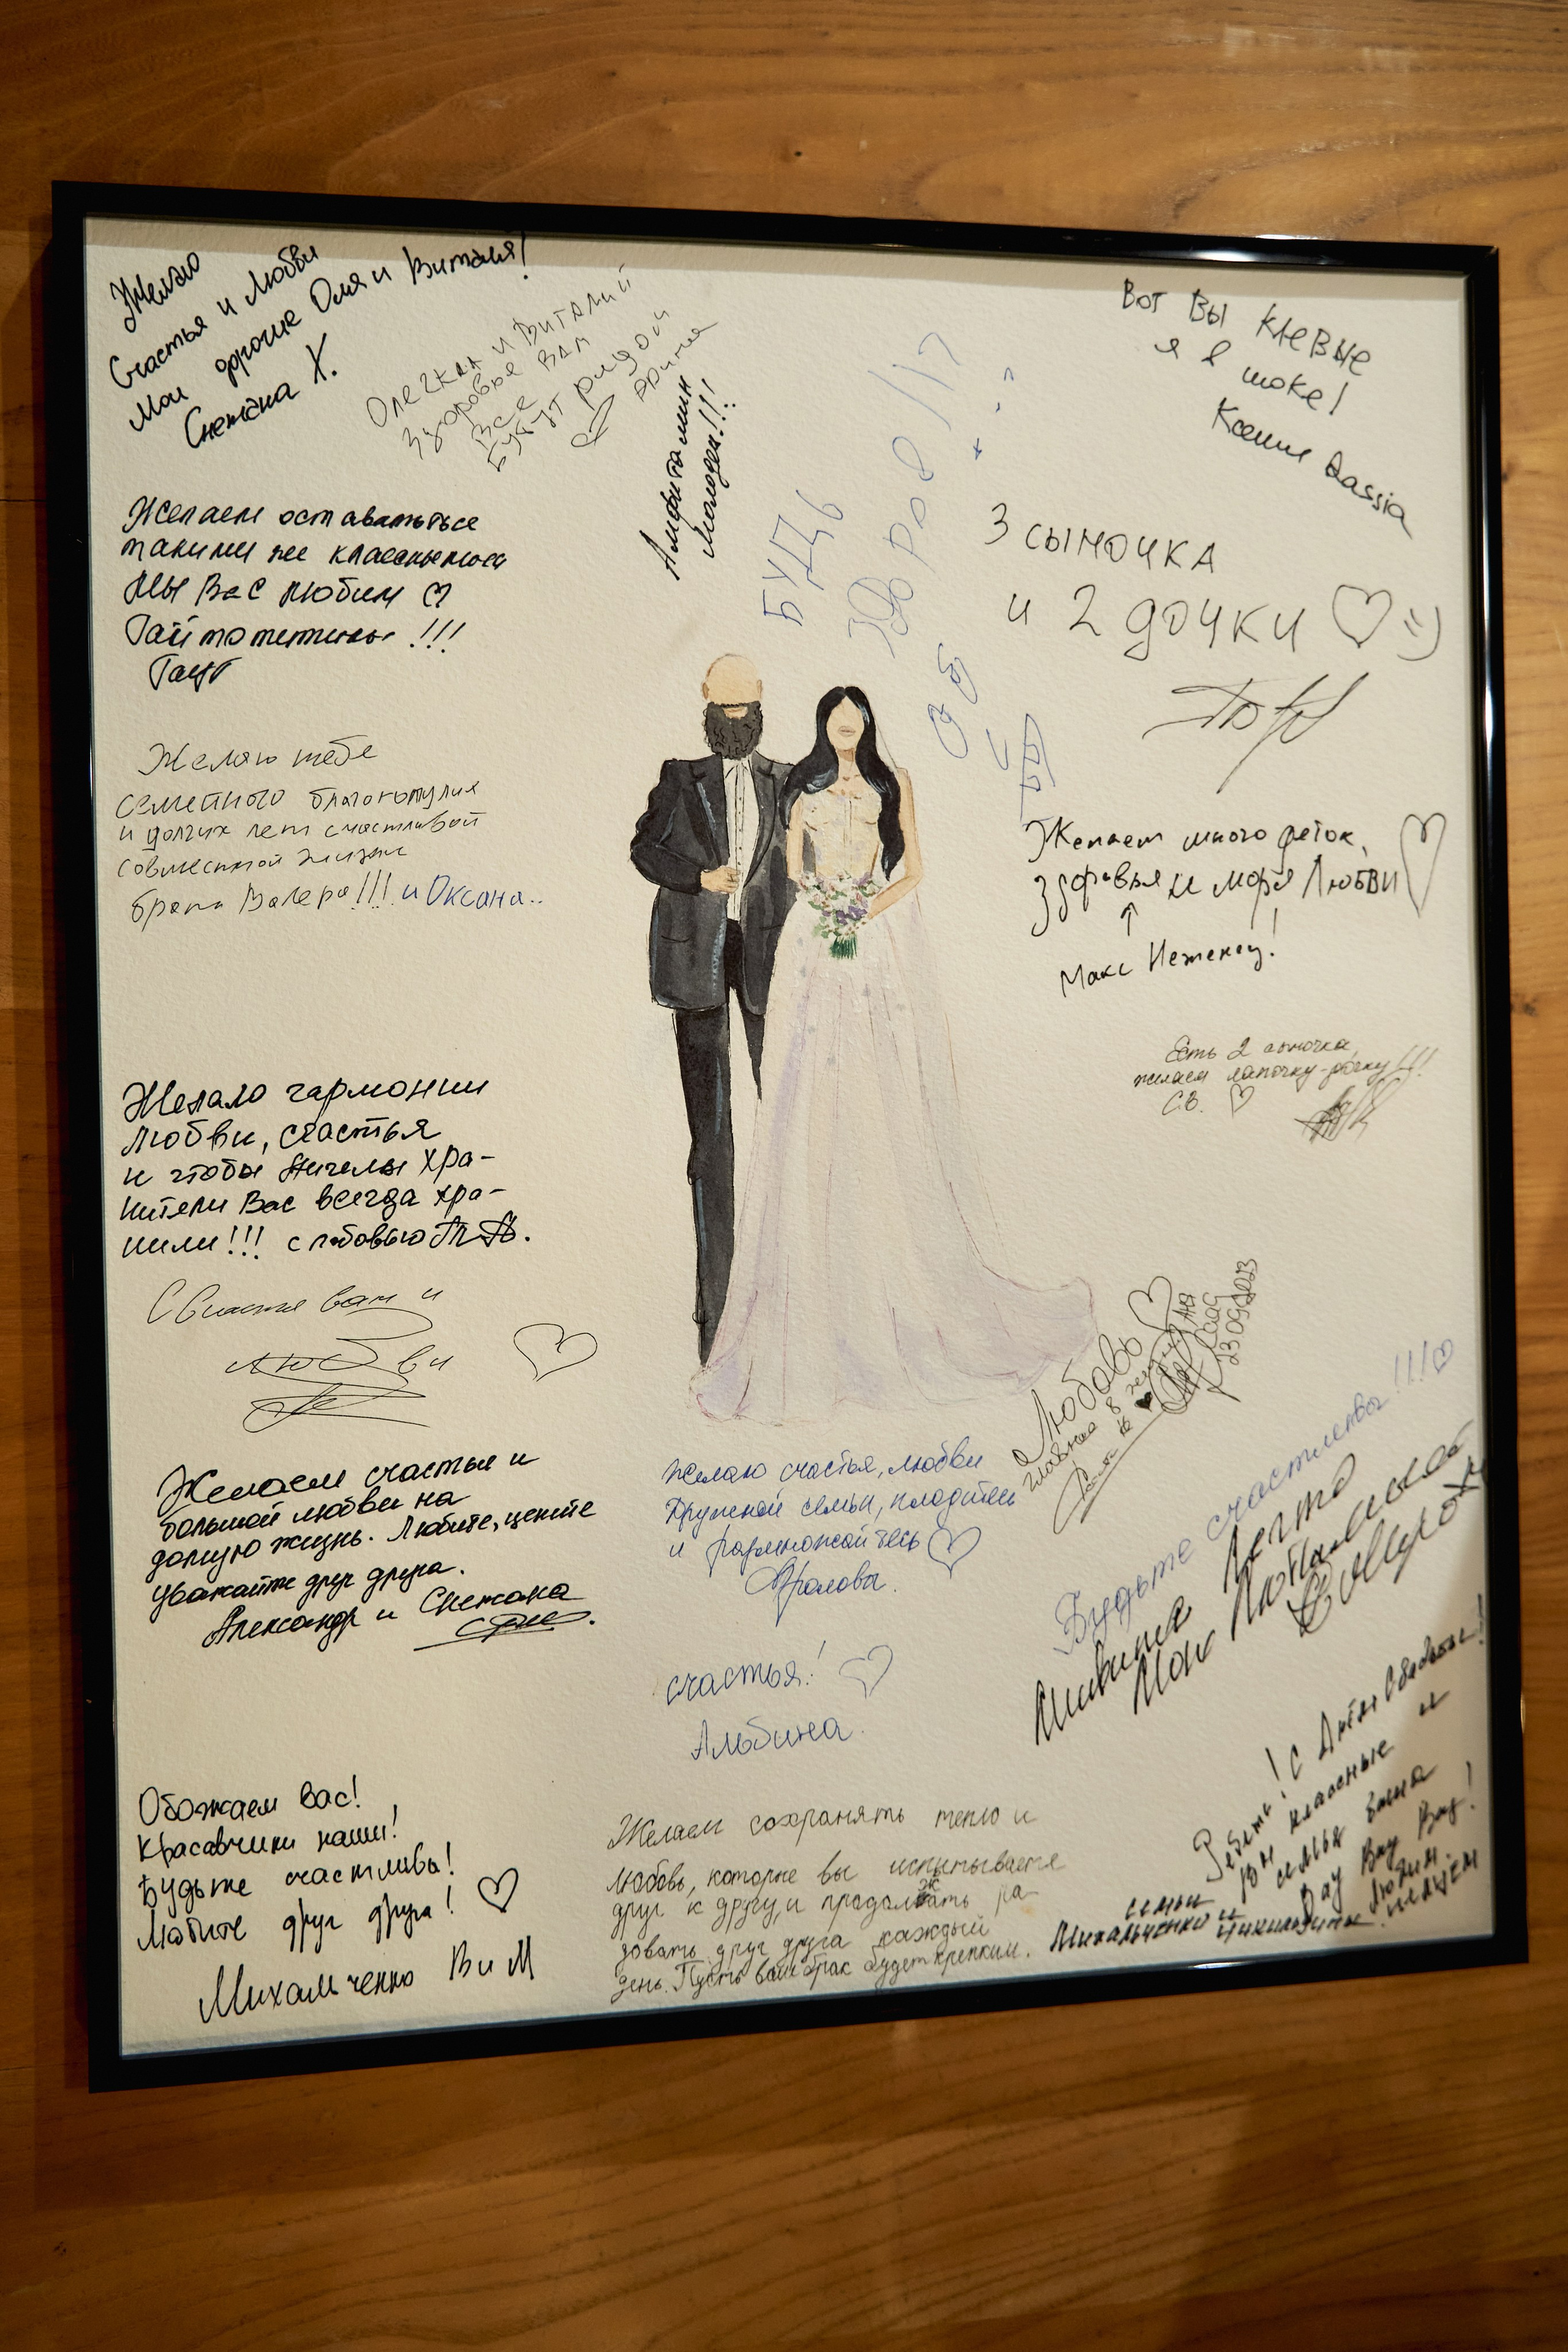 Желаю
Счастья и Любви
Мои дорогие Оля и Виталя!
Снежана Х.
Олечкан и Виталий
Здоровье Вам
Все
Будут рядом
Арина
Вот Вы клевые
я б тоже!
Ксения Qassia
3 сыночка
и 2 дочки
Желаем оставаться
такими же классными
Мы Вас любим
!!!
Желаю тебе
семейного благополучия
и долгих лет счастливой
совместной жизни
брат Валера!!! и Оксана..
Будь
Желаем много деток,
Здоровья и моря Любви
Макс Неженец!
Есть 2 сыночка,
желаем лапочку-дочку!!!
С.В.
Желаю гармонии
Любви, счастья
и чтобы Ангелы Хра-
нители Вас всегда хра-
нили!!! с любовью
Счастья вам и
любви
Любовь
главная в
23.09.2023
Желаем счастья и
большой любви на
долгую жизнь. Любите, цените
уважайте друг друга.
Александр и Снежана
Желаю счастья, любви
Дружной семьи, плодитесь
и размножайтесь
Фролова.
счастья!
Альбина
Будьте счастливы!!!
Мои Любимые
Обожаем вас!
Красавчики наши!
Будьте счастливы!
Любите друг друга!
Михальченко В и М
Желаем сохранять тепло и
любовь, которые вы испытываете
друг к другу, и продолжать ра-
довать друг друга каждый
день. Пусть ваш брак будет крепким.
Ребята! С Днём Свадьбы!
Вы классные и
семья ваша
Вау Вау Вау!
Любим.
семьи
Михальченко и